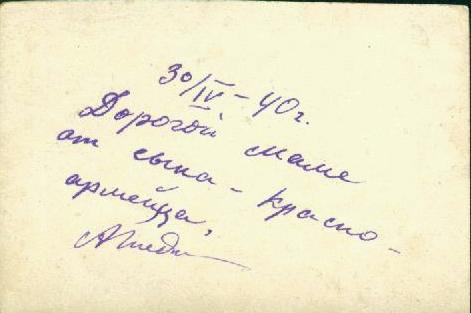 30/IV-40г.
Дорогой маме
от сына - красно-
армейца,